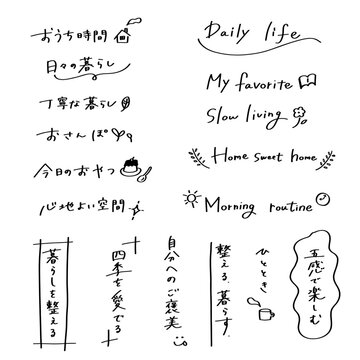 おうち時間
日々の暮らし
丁寧な暮らし
おさんぽ
今日のおやつ
心地よい空間
Daily life
My favorite
Slow living
Home sweet home
Morning routine
五感で楽しむ
ひととき
整える、暮らす。
自分へのご褒美
四季を愛でる
暮らしを整える